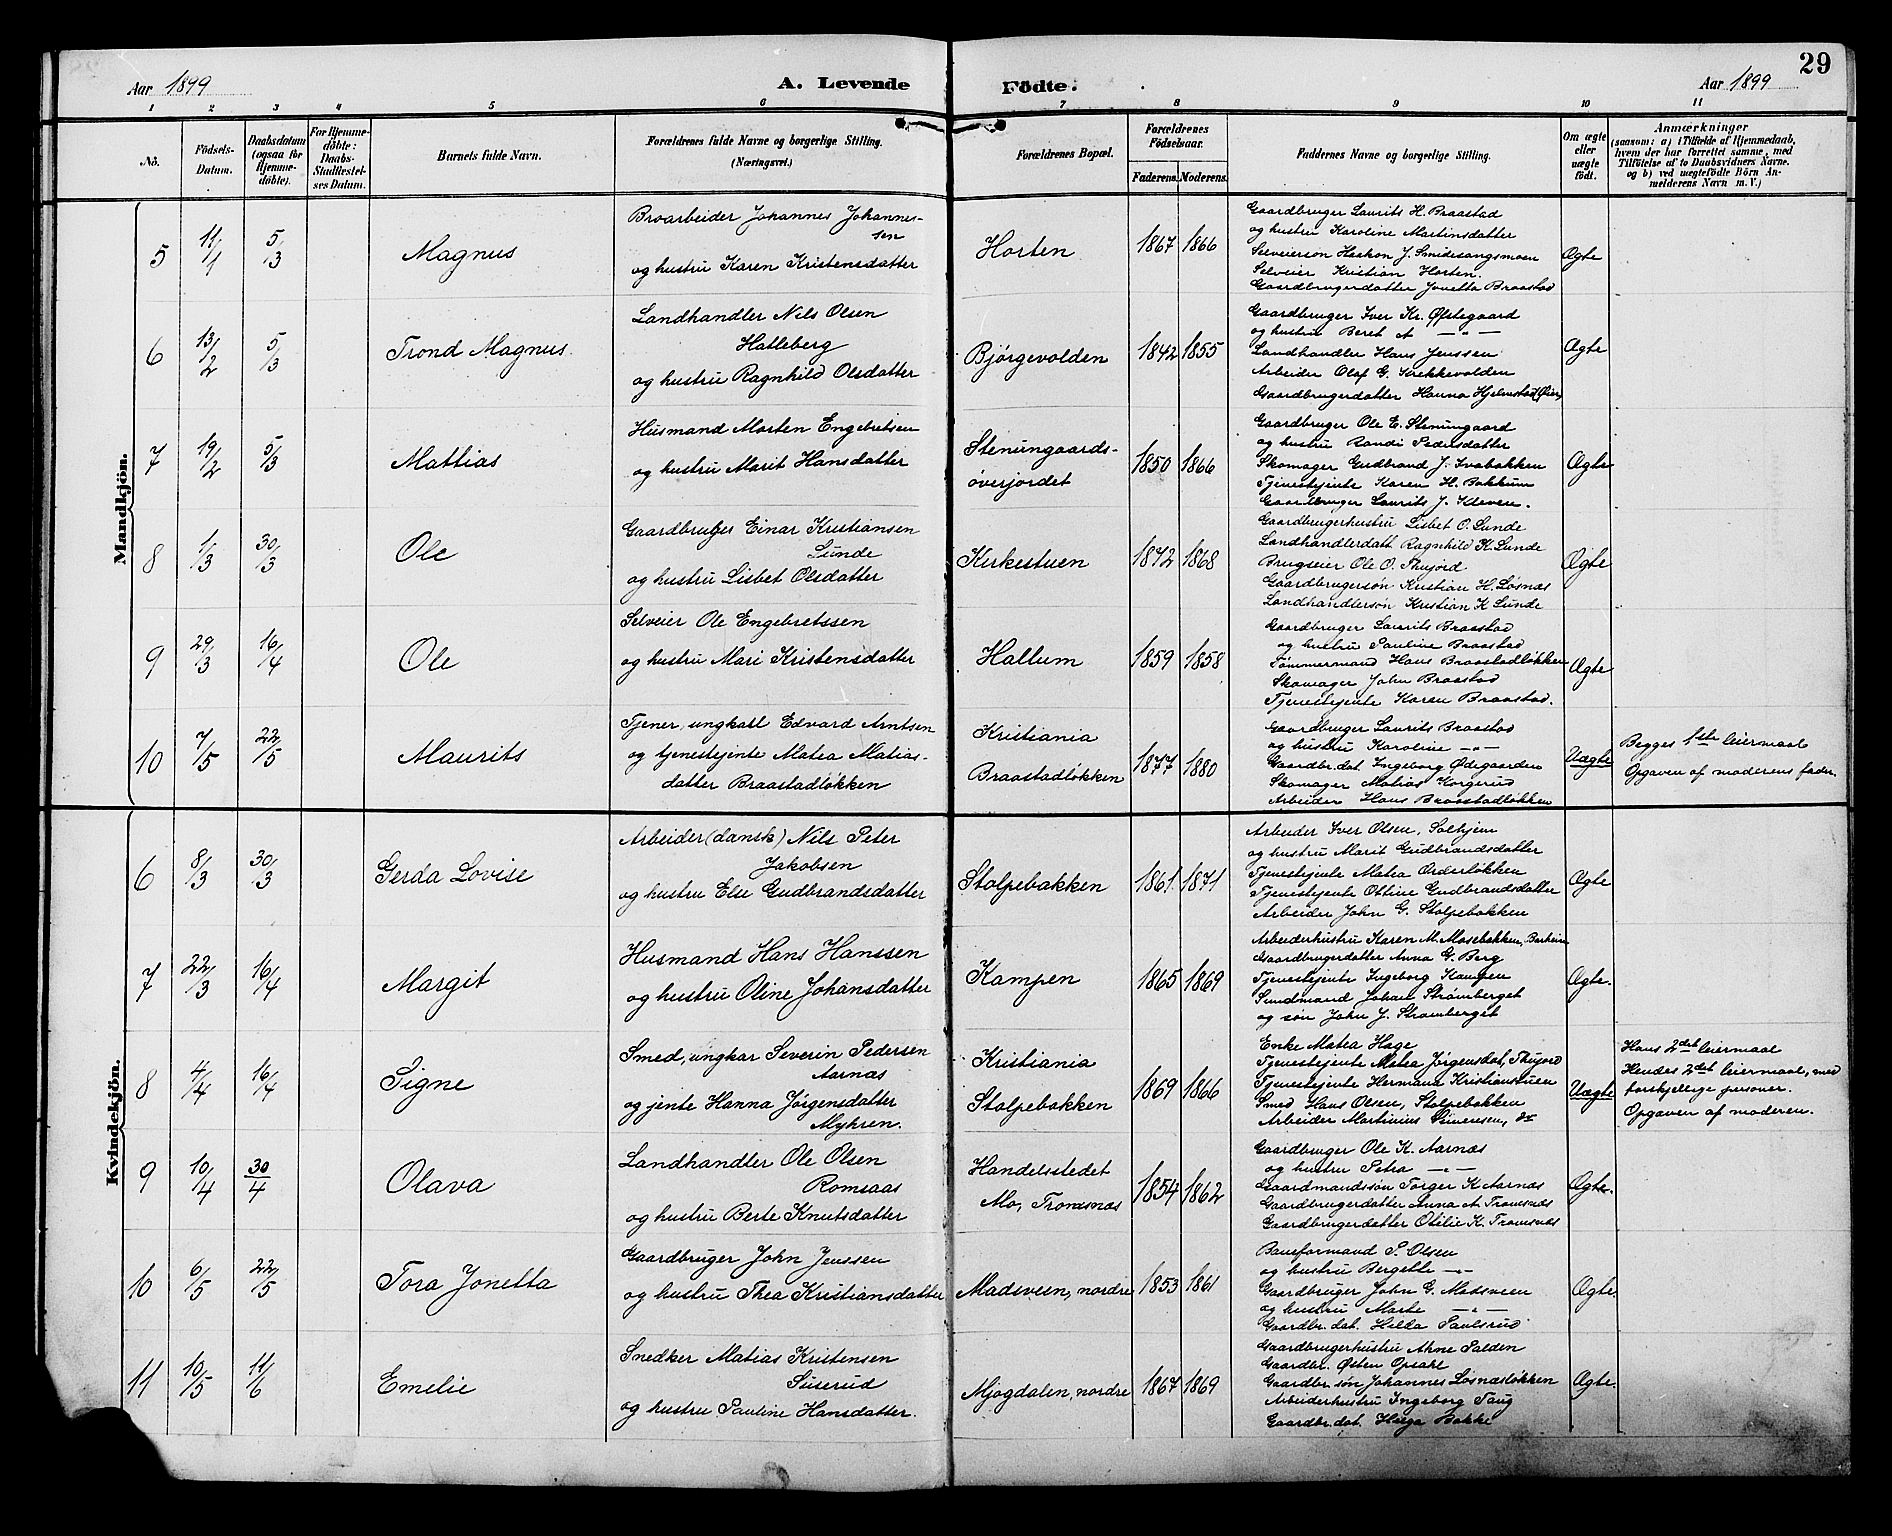 29
Aar 1899
A. Levende Födte.
Aar 1899
1 2 3 4 5 6 7 8 9 10 11
No.
Födsels-Datum.
Daabsdatum (ogsaa for Hjemme-döbte).
For Hjemme-döbte: Daabs-Stadfestel-ses Datum.
Barnets fulde Navn.
Forældrenes fulde Navne og borgerlige Stilling.
(Næringsvei.)
Forældrenes Bopæl.
Forældrenes Födselsaar.
Faderens. Moderens.
Faddernes Navne og borgerlige Stilling.
Om ægte eller uægte födt.
Anmærkninger
(saasom: a) i Tilfælde af Hjemmedaab,
hvem der har forrettet samme, med
Tilföielse af to Daabsvidners Navne.
og b) ved uægtefödte Börn An-
melderens Navn m. V.)
Mandkjön.
5 11/1 5/3 Magnus
Broarbeider Johannes Johannes-
sen
og hustru Karen Kristensdatter
Horten 1867 1866
Gaardbruger Laurits H. Braastad
og hustru Karoline Martinsdatter
Selveiersøn Haakon J. Smidesangsmoen
Selveier Kristian Horten.
Gaardbrugerdatter Jonetta Braastad
Ægte
6 13/2 5/3 Trond Magnus.
Landhandler Nils Olsen
Hatleberg
og hustru Ragnhild Olsdatter
Bjørgevolden 1842 1855
Gaardbruger Iver Kr. Øfstegaard
og hustru Beret A —"—
Landhandler Hans Jenssen
Arbeider Olaf G. Krekkevolden
Gaardbrugerdatter Hanna Hjelmstad, Øier,
Ægte
7 19/2 5/3 Mattias
Husmand Morten Engebretsen
og hustru Marit Hansdatter
Stenumgaards-
øverjordet
1850 1866
Gaardbruger Ole E. Stenumgaard
og hustru Randi Pedersdatter
Skomager Gudbrand J. Ivabakken
Tjenestejente Karen H. Bakkum
Gaardbruger Laurits J. Kleven.
Ægte
8 1/3 30/3 Ole
Gaardbruger Einar Kristiansen
Sunde
og hustru Lisbet Olsdatter
Kirkestuen 1842 1868
Gaardbrugerhustru Lisbet O. Sunde
Landhandlerdatt Ragnhild K. Sunde
Brugseier Ole O. Thujord
Gaardbrugersøn Kristian H. Løsnæs
Landhandlersøn Kristian K Sunde
Ægte
9 29/3 16/4 Ole
Selveier Ole Engebretssen
og hustru Mari Kristensdatter
Hallum 1859 1858
Gaardbruger Laurits Braastad
og hustru Pauline Braastad
Tømmermand Hans Braastadløkken
Skomager John Braastad
Tjenestejente Karen Braastad.
Ægte
10 7/5 22/5 Maurits
Tjener, ungkarl Edvard Arntsen
og tjenestejente Matea Matias-
datter Braastadløkken
Kristiania
Braastadløkken
1877 1880
Gaardbruger Laurits Braastad
og hustru Karoline —"—
Gaardbr.dat. Ingeborg Ødegaarden
Skomager Matias Korgerud
Arbeider Hans Braastadløkken
Uægte
Begges 1ste leiermaal
Opgaven af moderens fader.
Kvindekjön.
6 8/3 30/3 Gerda Lovise
Arbeider (dansk) Nils Peter
Jakobsen
og hustru Else Gudbrandsdatter
Stolpebakken 1861. 1871
Arbeider Iver Olsen, Solhjem
og hustru Marit Gudbrandsdatter
Tjenestejente Matea Orderløkken
Tjenestejente Ottine Gudbrandsdatter
Arbeider John G. Stolpebakken
Ægte
7 22/3 16/4 Margit
Husmand Hans Hanssen
og hustru Oline Johansdatter
Kampen 1865 1869
Arbeiderhustru Karen M. Mosebakken,
Gaardbrugerdatter Anna G. Berg
Tjenestejente Ingeborg Kampen
Sundmand Johan Strømberget
og søn John J. Strømberget
Ægte.
8 4/4 16/4 Signe
Smed, ungkar Severin Pedersen
Aarnæs
og jente Hanna Jørgensdatter
Myhren.
Kristiania
Stolpebakken
1869 1866
Enke Matea Hage
Tjenestejente Matea Jørgensdat, Thujord
Tjenestejente Hermana Kristianstuen
Smed Hans Olsen, Stolpebakken
Arbeider Martinius Simensen, do
Uægte
Hans 2det leiermaal
Hendes 2det leiermaal, med
forskjellige personer.
Opgaven af moderen.
9 10/4 30/4 Olava
Landhandler Ole Olsen
Romsaas
og hustru Berte Knutsdatter
Handelsstedet
Mo, Tromsnæs
1854 1862
Gaardbruger Ole K. Aarnæs
og hustru Petra —"—
Gaardmandssøn Torger K Aarnæs
Gaardbrugerdatter Anna A Tromsnæs
Gaardbrugerdatter Otilie K. Tromsnæs
Ægte.
10 6/5 22/5 Tora Jonetta
Gaardbruger John Jenssen
og hustru Thea Kristiansdatter
Madsveen, nordre 1853 1861
Baneformand P. Olsen
og hustru Bergette —"—
Gaardbruger John G. Madsveen
og hustru Marte —"—
Gaardbr.dat. Hilda Paulsrud
Ægte.
11 10/5 11/6 Emelie
Snedker Matias Kristensen
Suserud
og hustru Pauline Hansdatter.
Mjogdalen, nordre 1867 1869
Gaardbrugerhustru Ahne Salden
Gaardbr. Østen Opsahl
Gaardbr.søn Johannes Løsnæsløkken
Arbeiderhustru Ingeborg Taug
Gaardbr.dat. Helga Bakke
Ægte.